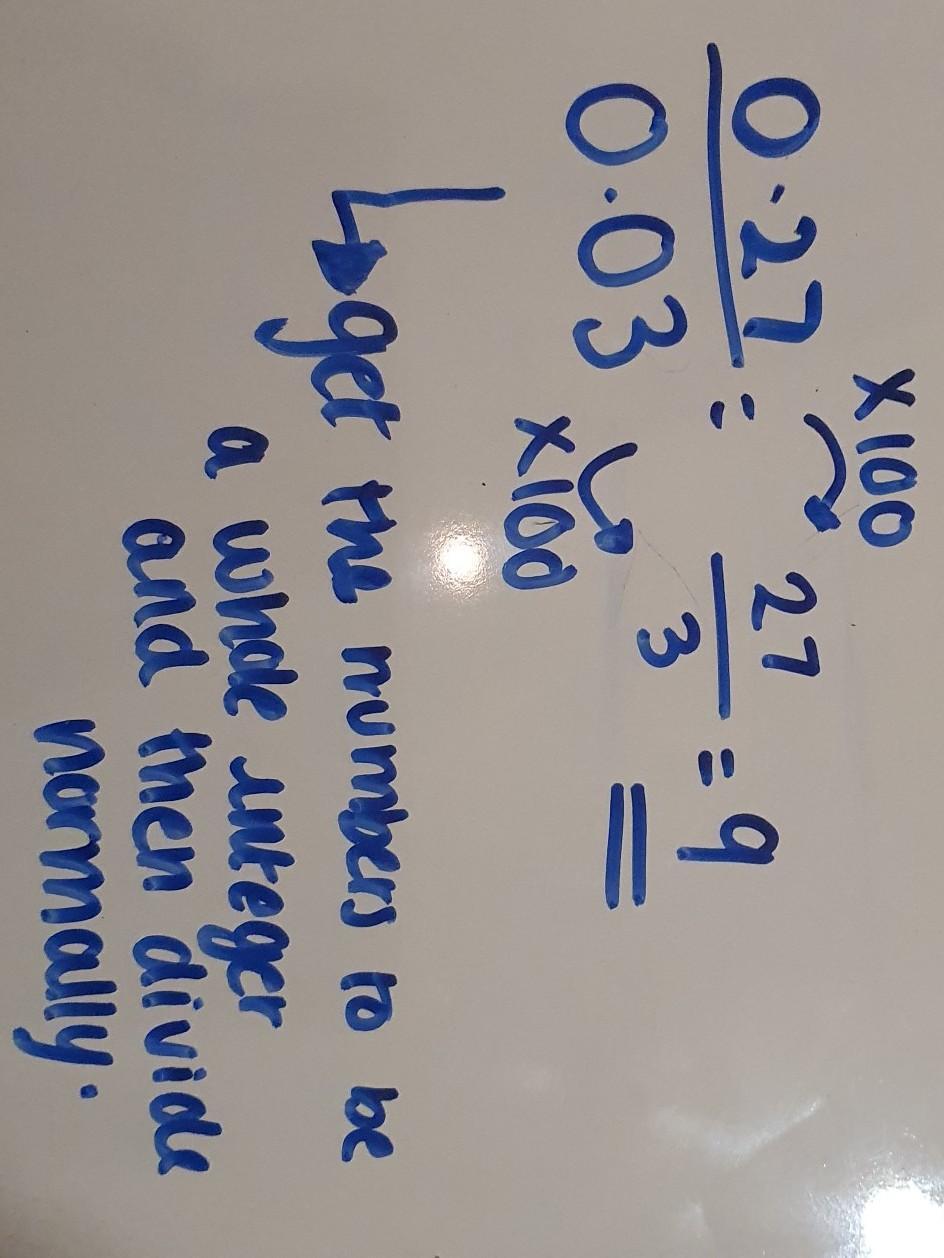 ×100
0.27 = 27 = 9
0.03 3
×100
get the numbers to be
a whole integer
and then divide
normally.